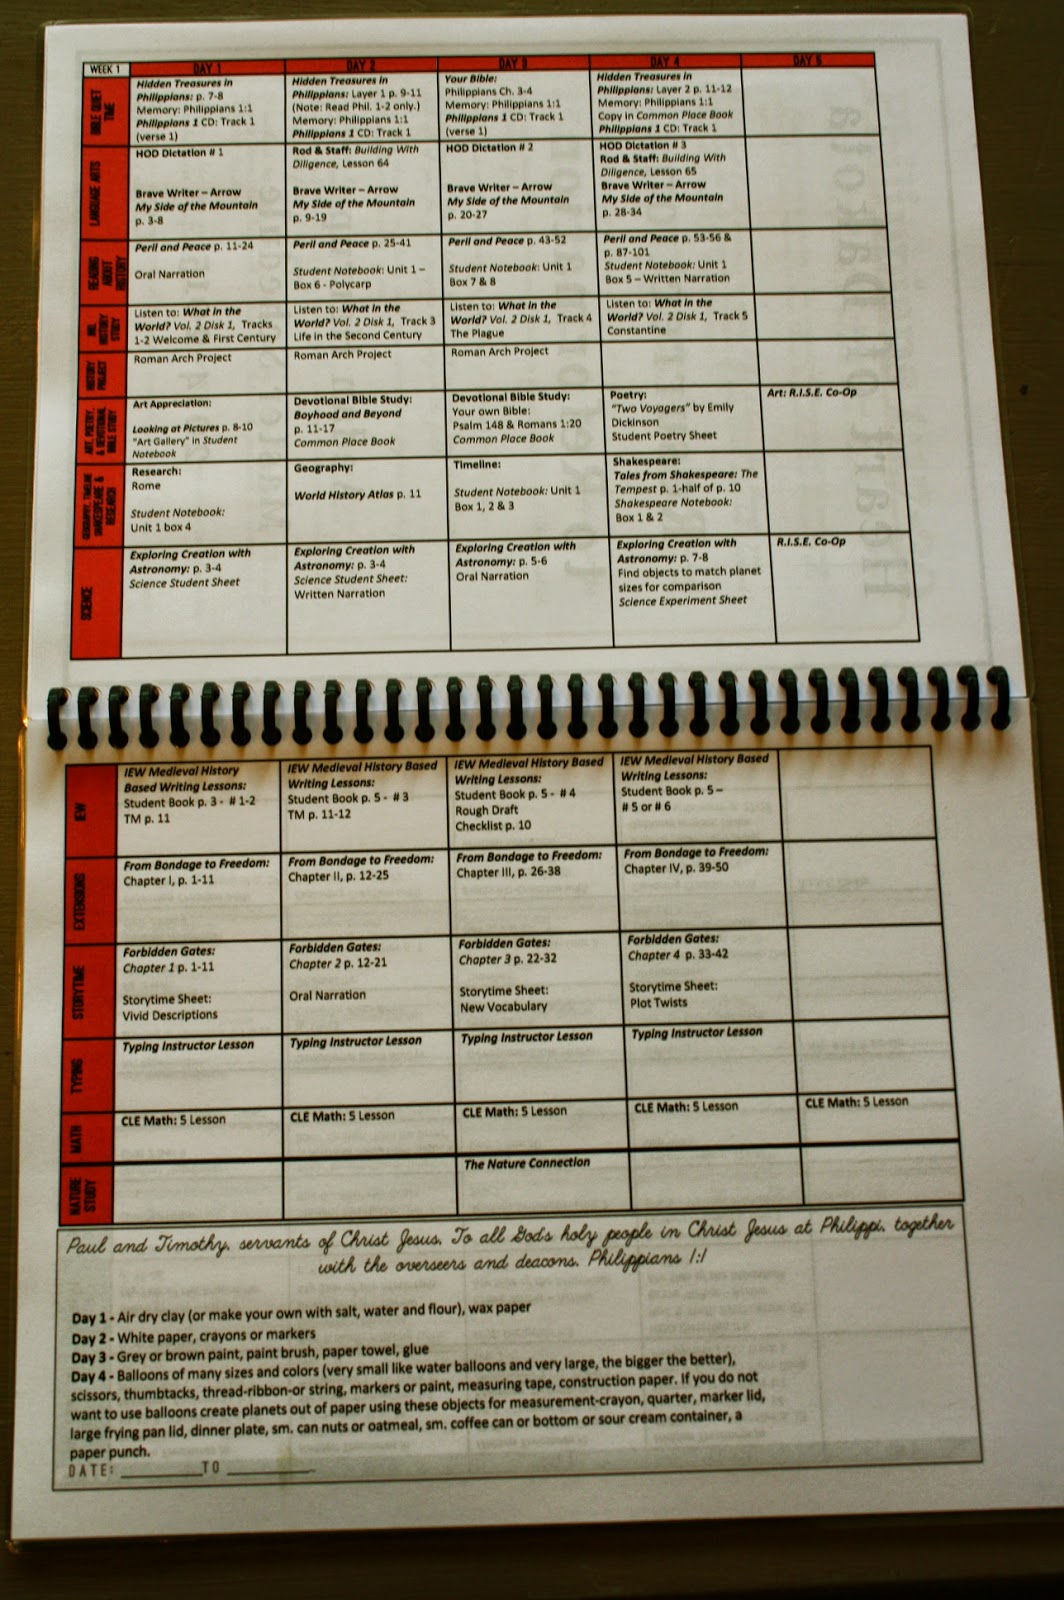 WEEK 1 DAY 1 DAY 2 DAY 3 DAY 4 DAY 5
BIBLE QUIET
TIME
Hidden Treasures in
Philippians: p. 7-8
Memory: Philippians 1:1
Philippians 1 CD: Track 1
(verse 1)
Hidden Treasures in
Philippians: Layer 1 p. 9-11
(Note: Read Phil. 1-2 only.)
Memory: Philippians 1:1
Philippians 1 CD: Track 1
Your Bible:
Philippians Ch. 3-4
Memory: Philippians 1:1
Philippians 1 CD: Track 1
(verse 1)
Hidden Treasures in
Philippians: Layer 2 p. 11-12
Memory: Philippians 1:1
Copy in Common Place Book
Philippians 1 CD: Track 1
LANGUAGE ARTS
HOD Dictation # 1
Brave Writer – Arrow
My Side of the Mountain
p. 3-8
Rod & Staff: Building With
Diligence, Lesson 64
Brave Writer – Arrow
My Side of the Mountain
p. 9-19
HOD Dictation # 2
Brave Writer – Arrow
My Side of the Mountain
p. 20-27
HOD Dictation # 3
Rod & Staff: Building With
Diligence, Lesson 65
Brave Writer – Arrow
My Side of the Mountain
p. 28-34
READING
ABOUT
HISTORY
Peril and Peace p. 11-24
Oral Narration
Peril and Peace p. 25-41
Student Notebook: Unit 1 –
Box 6 - Polycarp
Peril and Peace p. 43-52
Student Notebook: Unit 1
Box 7 & 8
Peril and Peace p. 53-56 &
p. 87-101
Student Notebook: Unit 1
Box 5 – Written Narration
HISTORY
STUDY
Listen to: What in the
World? Vol. 2 Disk 1, Tracks
1-2 Welcome & First Century
Listen to: What in the
World? Vol. 2 Disk 1, Track 3
Life in the Second Century
Listen to: What in the
World? Vol. 2 Disk 1, Track 4
The Plague
Listen to: What in the
World? Vol. 2 Disk 1, Track 5
Constantine
HISTORY
PROJECT
Roman Arch Project
Roman Arch Project
Roman Arch Project
ART, POETRY,
& DEVOTIONAL
BIBLE STUDY
Art Appreciation:
Looking at Pictures p. 8-10
"Art Gallery" in Student
Notebook
Devotional Bible Study:
Boyhood and Beyond
p. 11-17
Common Place Book
Devotional Bible Study:
Your own Bible:
Psalm 148 & Romans 1:20
Common Place Book
Poetry:
"Two Voyagers" by Emily
Dickinson
Student Poetry Sheet
Art: R.I.S.E. Co-Op
GEOGRAPHY, TIMELINE
SHAKESPEARE &
RESEARCH
Research:
Rome
Student Notebook:
Unit 1 box 4
Geography:
World History Atlas p. 11
Timeline:
Student Notebook: Unit 1
Box 1, 2 & 3
Shakespeare:
Tales from Shakespeare: The
Tempest p. 1-half of p. 10
Shakespeare Notebook:
Box 1 & 2
SCIENCE
Exploring Creation with
Astronomy: p. 3-4
Science Student Sheet
Exploring Creation with
Astronomy: p. 3-4
Science Student Sheet:
Written Narration
Exploring Creation with
Astronomy: p. 5-6
Oral Narration
Exploring Creation with
Astronomy: p. 7-8
Find objects to match planet
sizes for comparison
Science Experiment Sheet
R.I.S.E. Co-Op
IEW
IEW Medieval History
Based Writing Lessons:
Student Book p. 3 - # 1-2
TM p. 11
IEW Medieval History Based
Writing Lessons:
Student Book p. 5 - # 3
TM p. 11-12
IEW Medieval History Based
Writing Lessons:
Student Book p. 5 - # 4
Rough Draft
Checklist p. 10
IEW Medieval History Based
Writing Lessons:
Student Book p. 5 –
# 5 or # 6
EXTENSIONS
From Bondage to Freedom:
Chapter I, p. 1-11
From Bondage to Freedom:
Chapter II, p. 12-25
From Bondage to Freedom:
Chapter III, p. 26-38
From Bondage to Freedom:
Chapter IV, p. 39-50
STORYTIME
Forbidden Gates:
Chapter 1 p. 1-11
Storytime Sheet:
Vivid Descriptions
Forbidden Gates:
Chapter 2 p. 12-21
Oral Narration
Forbidden Gates:
Chapter 3 p. 22-32
Storytime Sheet:
New Vocabulary
Forbidden Gates:
Chapter 4 p. 33-42
Storytime Sheet:
Plot Twists
TYPING
Typing Instructor Lesson
Typing Instructor Lesson
Typing Instructor Lesson
Typing Instructor Lesson
MATH
CLE Math: 5 Lesson
CLE Math: 5 Lesson
CLE Math: 5 Lesson
CLE Math: 5 Lesson
CLE Math: 5 Lesson
NATURE
STUDY
The Nature Connection
Paul and Timothy, servants of Christ Jesus, To all God's holy people in Christ Jesus at Philippi, together
with the overseers and deacons. Philippians 1:1
Day 1 - Air dry clay (or make your own with salt, water and flour), wax paper
Day 2 - White paper, crayons or markers
Day 3 - Grey or brown paint, paint brush, paper towel, glue
Day 4 - Balloons of many sizes and colors (very small like water balloons and very large, the bigger the better),
scissors, thumbtacks, thread-ribbon-or string, markers or paint, measuring tape, construction paper. If you do not
want to use balloons create planets out of paper using these objects for measurement-crayon, quarter, marker lid,
large frying pan lid, dinner plate, sm. can nuts or oatmeal, sm. coffee can or bottom or sour cream container, a
paper punch.
DATE: __________TO __________